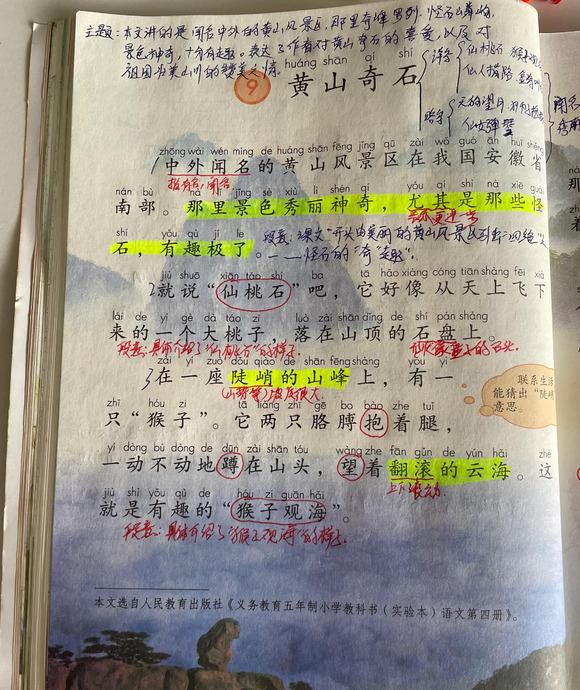 主题:本文讲的是闻名中外的黄山风景区,那里奇峰罗列,怪石嶙峋,
景色神奇,十分有趣。表达了作者对黄山奇石的喜爱,以及对
祖国大美山川的赞美之情。
详写 仙桃石 猴子观海
仙人指路
略写 天狗望月
仙女弹琴
闻名
huáng shān qí shí
9 黄山奇石
zhōng wài wén míng de huáng shān fēng jǐng qū zài wǒ guó ān huī shěng
1 中外闻名的黄山风景区在我国安徽省
nán bù nà lǐ jǐng sè xiù lì shén qí yóu qí shì nà xiē guài
南部。那里景色秀丽神奇,尤其是那些怪
shí yǒu qù jí le
石,有趣极了。
jiù shuō xiān táo shí ba tā hǎo xiàng cóng tiān shàng fēi xià
2 就说“仙桃石”吧,它好像从天上飞下
lái de yí gè dà táo zi luò zài shān dǐng de shí pán shàng
来的一个大桃子,落在山顶的石盘上。
段意:具体介绍了“仙桃石”的样子。
zài yí zuò dǒu qiào de shān fēng shàng yǒu yì
3 在一座陡峭的山峰上,有一
联系生活
能猜出“陡峭
意思。
zhī hóu zi tā liǎng zhī gē bo bào zhe tuǐ
只“猴子”。它两只胳膊抱着腿,
yí dòng bú dòng de dūn zài shān tóu wàng zhe fān gǔn de yún hǎi zhè
一动不动地蹲在山头,望着翻滚的云海。这
上下滚动
jiù shì yǒu qù de hóu zi guān hǎi
就是有趣的“猴子观海”。
段意:具体介绍了“猴子观海”的样子。
本文选自人民教育出版社《义务教育五年制小学教科书(实验本)语文第四册》。